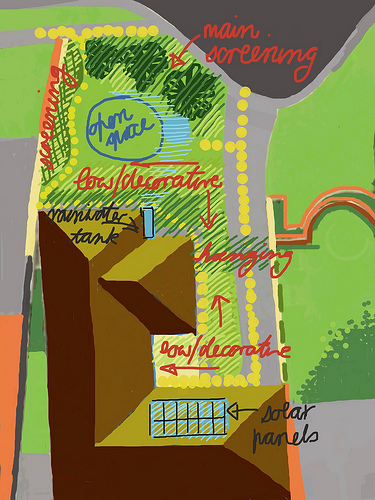 main
screening
screening
open
space
low/decorative
rainwater
tank
hanging
low/decorative
solar
panels